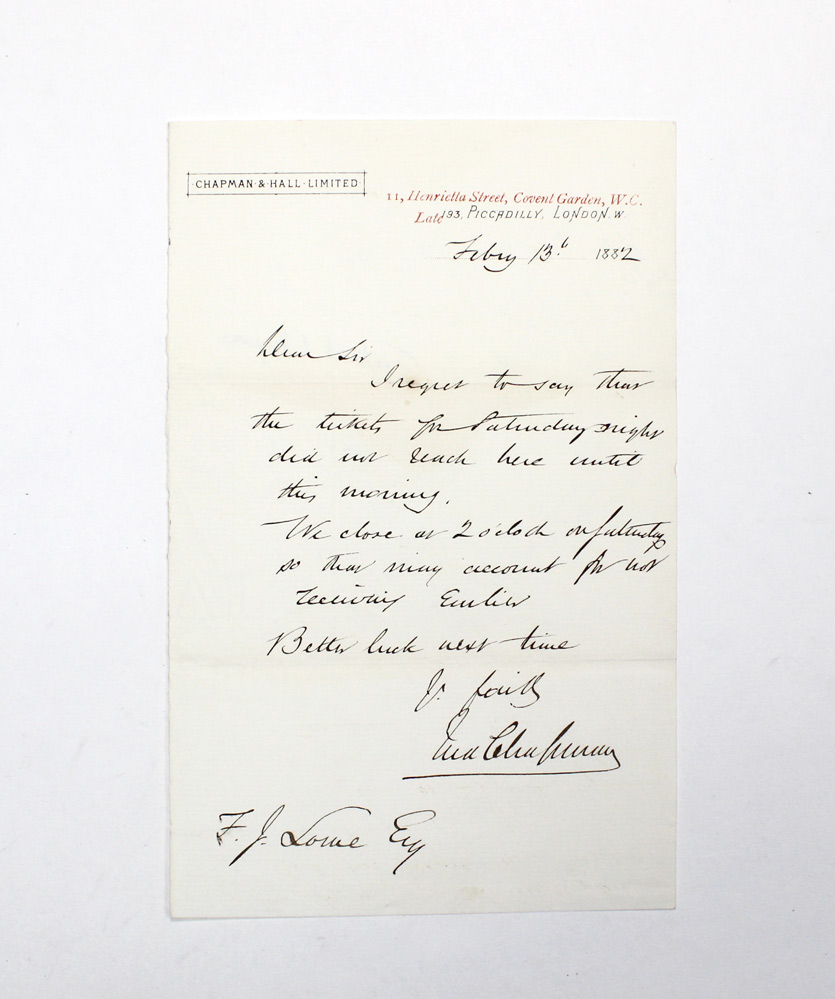 CHAPMAN & HALL LIMITED
11, Henrietta Street, Covent Garden, W.C.
Late 193, PICCADILLY, LONDON. W
Febry 13th 1882
Dear Sir
I regret to say that
the tickets for Saturday night
did not reach here until
this morning.
We close at 2 o'clock on Saturday
so that may account for not
receiving Earlier
Better luck next time
Yr faithy
Chapman
F. J. Lowe Esq